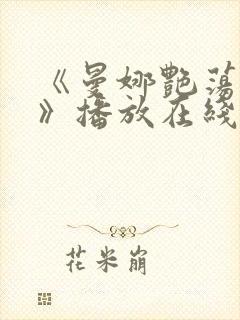 《曼娜艷蕩
》播放在綫
花米崩